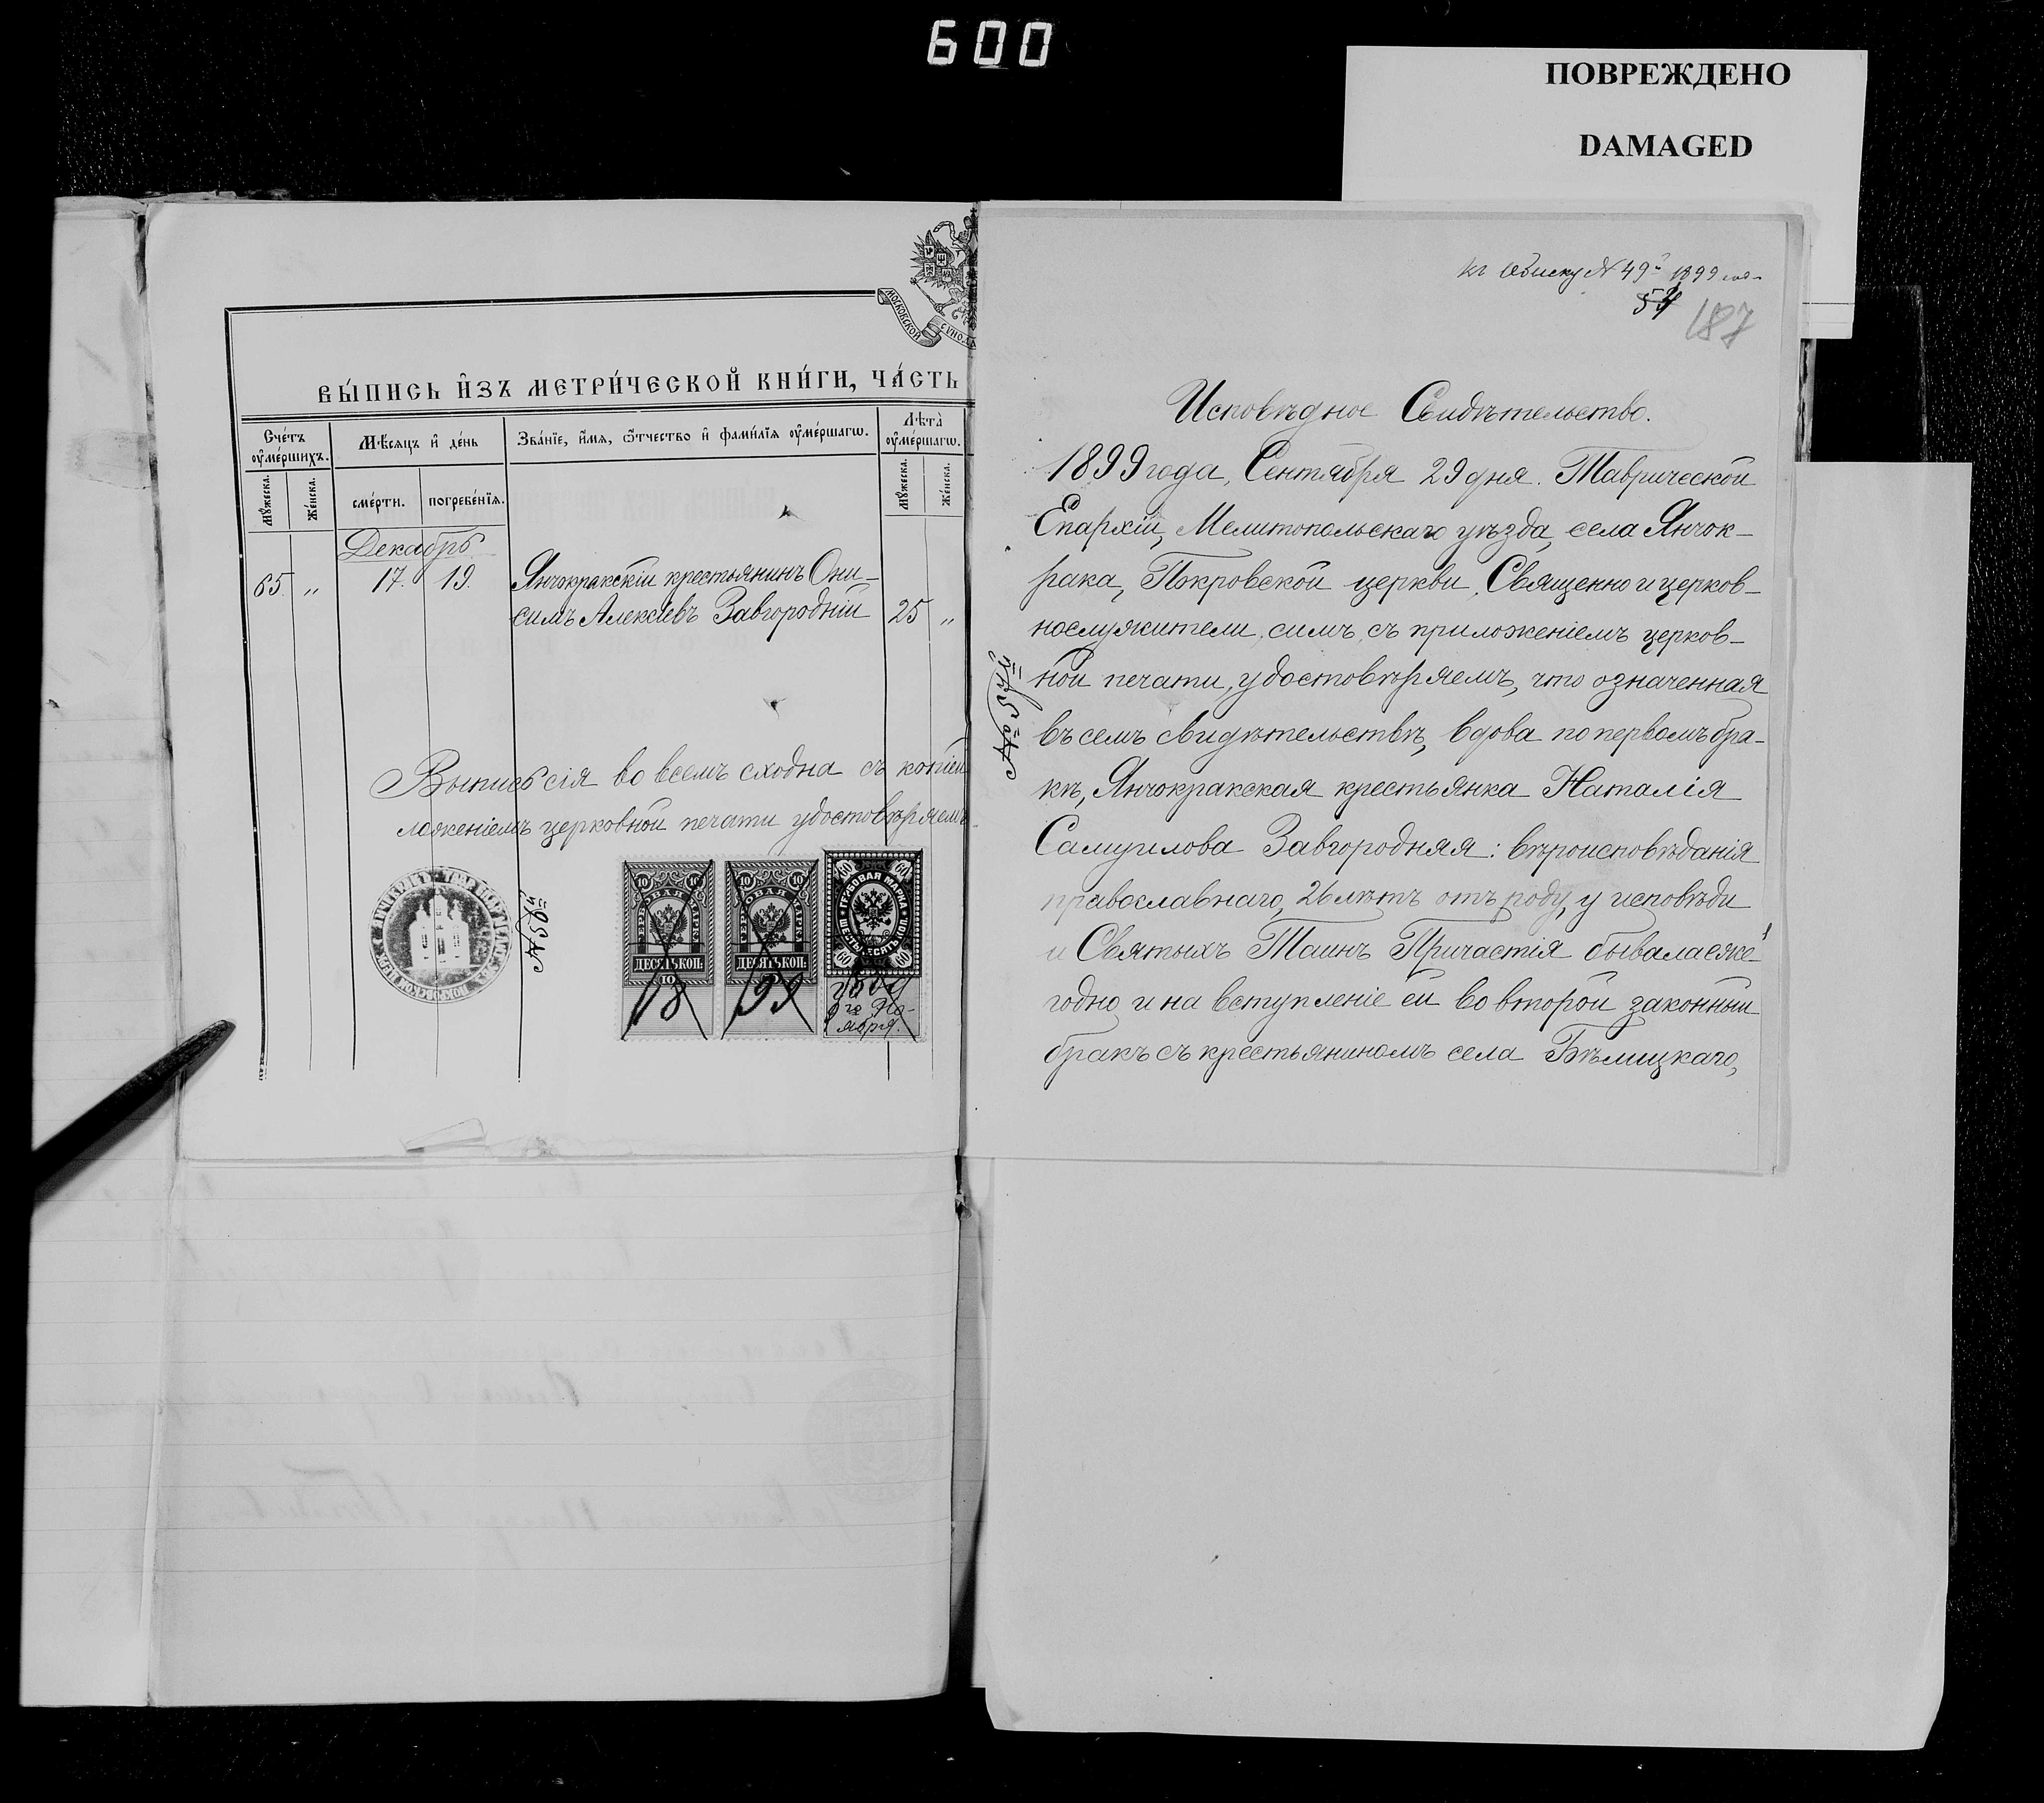 600
ПОВРЕЖДЕНО
DAMAGED
МОСКОВСКОЙ
ВЫ́ПИСЬ И҆ЗЪ МЕТРИ́ЧЕСКОЙ КНИ́ГИ, ЧА́СТЬ
Сче́тъ оу҆ме́ршихъ.
Мѣ́сяцъ и҆ де́нь
Зва́нїе, и҆́мѧ, ѻ҆́тчество и҆ фами́лїѧ оу҆ме́ршагѡ.
Лѣ́та оу҆ме́ршагѡ.
Му́жеска.
Же́нска.
сме́рти.
погребе́нїѧ.
Му́жеска.
Же́нска.
Декабрь
65. „ 17. 19. Янчокракскій крестьянинъ Они-
симъ Алексѣевъ Завгородній 25 „
Выпись сія во всемъ сходна съ копіей
ложеніемъ церковной печати удостовѣряемъ
10 10
ГЕРБОВАЯ МАРКА
ДЕСЯТЬ КОП.
10
18
10 10
ГЕРБОВАЯ МАРКА
ДЕСЯТЬ КОП.
99
60 60
ГЕРБОВАЯ МАРКА
ШЕСТЬДЕСЯТЪ КОП.
60 60
года
9го Но-
ября.
къ обыску № 49й 1899 года
187
Исповѣдное Свидѣтельство.
1899 года, Сентября 29 дня. Таврической
Епархіи, Мелитопольскаго уѣзда, села Янчок-
рака, Покровской церкви, Священно и церков-
нослужители, симъ, съ приложеніемъ церков-
ной печати, удостовѣряемъ, что означенная
въ семъ свидѣтельствѣ, вдова по первомъ бра-
кѣ, Янчокракская крестьянка Наталія
Самуилова Завгородняя: вѣроисповѣданія
православнаго, 26 лѣтъ отъ роду, у исповѣди
и Святыхъ Таинъ Причастія бывала еже-
годно и на вступленіе ей во второй законный
бракъ съ крестьяниномъ села Бѣлицкаго,